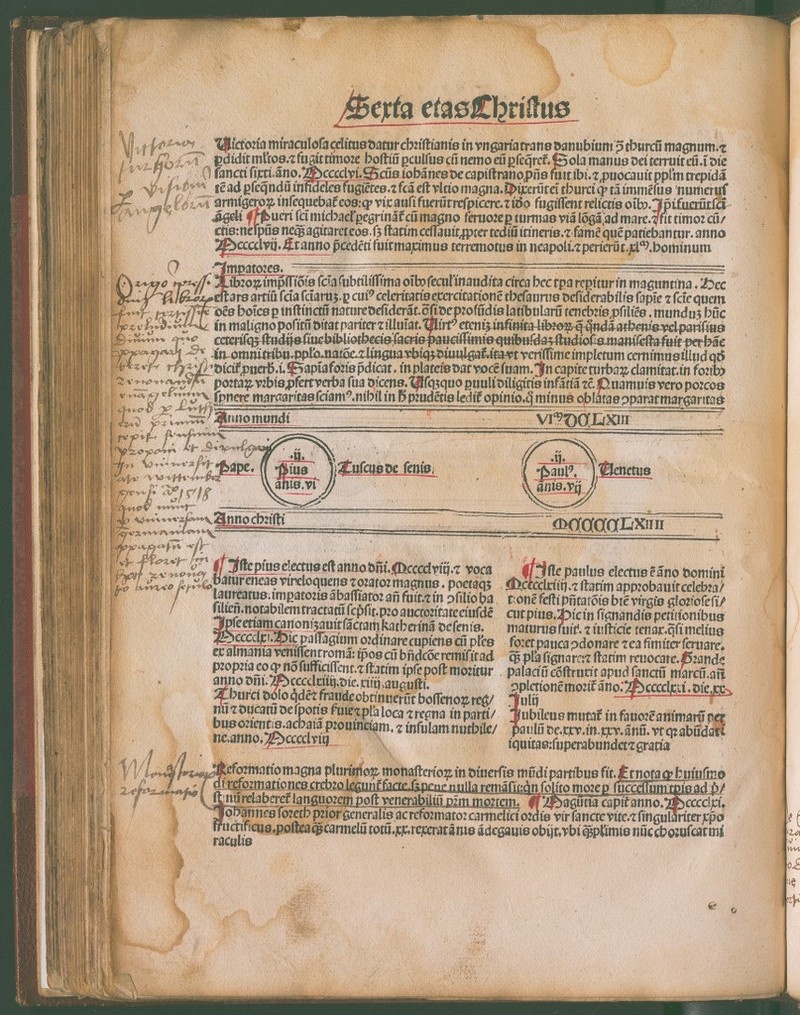 Sexta etas Christus
Uictoria miraculosa celitus datur christianis in vngaria trans danubium ↄ̃ thurcū magnum. ⁊
ꝑdidit ml̃tos. ⁊ fugit timore hostiū ꝑculsus cū nemo eū ꝑseq̄ret. Sola manus dei terruit eū. ī die
sancti sixti. āno. Mcccclvi. Scūs iohānes de capistrano, p̄ñs fuit ibi. ⁊ ꝓuocauit ppl̃m trepidā
tē ad ꝑseq̄ndū infideles fugiētes. ⁊ fcā est vltio magna. Dixerūt eī thurci ꝙ tā immēsus numerus
armigeroꝝ insequebat̃ eos: ꝙ vix ausi fuerūt respicere. ⁊ iōo fugissent relictis oībꝰ. Ip̄i fuerūt scī
āgeli ¶ Pueri sci michael' ꝑegrināt̃ cū magno feruore ꝑ turmas viā lōgā ad mare. ⁊ fit timor cū/
ctis: ne sp̄us neq̃ʒ agitaret eos. sʒ statim cessauit, ꝓpter tediū itineris. ⁊ famē quē patiebantur. anno
Mcccclvij. Et anno p̄cedēti fuit maximus terremotus in neapoli. ⁊ perierūt. xlᵐ. hominum
Impatores.
Libroꝝ imp̄ssiōis scīa subtilissima oībꝰ secul' inaudita circa hec tp̄a reꝑitur in maguntina. Hec
est ars artiū scīa sciarū. ꝑ cuiꝰ celeritatis exercitationē thesaurus desiderabilis sapiē ⁊ scīe quem
oēs hoīes ꝑ instinctū nature desiderāt. q̄si de ꝓfūdis latibularū tenebris ꝓsiliēs. mundū hūc
in maligno positū ditat pariter ⁊ illuīat. Uirtꝰ etenī infinita libroꝝ q̄ q̄ndā athenis vel parisius
ceterisqʒ studijs siue bibliothecis sacris paucissimis quibusdā studiosis manifesta fuit per hāc
in omni tribu. pplo. natōe. ⁊ lingua vbiqʒ diuulgat̃. ita vt verissime impletum cernimus illud qd̄
dicit̃ ꝓuerb. i. Sapīa foris p̄dicat. in plateis dat vocē suam. In capite turbaꝝ clamitat. in foribꝰ
portaꝝ vrbis ꝓfert verba sua dicens. Usqʒquo ꝑuuli diligitis infātiā ⁊c̄. Quamuis vero porcos
spnere margaritas sciamꝰ. nihil in h̄ prudētis ledit̃ opinio. q̄ minus oblatas ↄparat margaritas
Anno mundi VIᵐDCLXIII
Pape. .ij. Pius anis. vi Tuscus de senis. .ij. Paulꝰ. anis. vij Uenetus
Anno christi MCCCCLXIIII
¶ Iste pius electus est anno dñi. Mcccclviij. ⁊ voca
batur eneas vir eloquens ⁊ orator magnus. poetaqʒ
laureatus. imꝑatoris ābassiator añ fuit. ⁊ in ↄsilio ba
silieñ. notabilem tractatū sc̄psit. pro auctoritate eiusdē
Ipse etiam canonizauit sāctam katherinā de senis.
Mcccclxi. Hic passagium ordinare cupiens cū pl'es
ex almania venissent romā: ip̄os cū bn̄dcōe remisit ad
propria eo ꝙ nō sufficissent. ⁊ statim ipse post moritur
anno dñi. Mcccclxiiij. die. xiiij. augusti.
Thurci dolo q̄dē ⁊ fraude obtinuerūt bossenoꝝ reg/
nū ⁊ ducatū despotis suie ⁊ pl'a loca ⁊ regna in parti/
bus orientis. achaiā prouinciam. ⁊ insulam mithile/
ne. anno. Mcccclviij
¶ Iste paulus electus ē āno domini
Mcccclxiiij. ⁊ statim approbauit celebra/
tionē festi p̄ñtatōis bt̄e virgis gloriose si/
cut pius. Hic in signandis petitionibus
maturus fuit. ⁊ iusticie tenax. q̄si melius
foret pauca ↄdonare ⁊ ea firmiter seruare.
q̄ʒ pl'a signare: ⁊ statim reuocare. Grande
palaciū cōstruxit apud sanctū marcū. añ
ↄpletionē morit̃ āno. Mcccclxxi. die. xx.
Julij
Jubileus mutat̃ in fauorē animarū per
paulū de. xxv. in. xxv. ānū. vt q̄ abūdat
iquitas: superabundet ⁊ gratia
Reformatio magna plurimoꝝ monasterioꝝ in diuersis mūdi partibus fit. Et nota ꝙ huiusmo
di reformationes crebro legunt̃ facte. sʒ pene nulla remāsit: q̄n solito more ꝑ successum tp̄is ad p̄/
st nū relaberet̃ languorem post venerabiliū p̄rm mortem. ¶ Magūtia capit̃ anno. Mcccclxi.
Johannes soreth prior generalis ac reformator carmelici ordīs vir sancte vite. ⁊ singulariter xp̄o
fructificus. postea q̄ʒ carmelū totū. xx. rexerat ānis ādegauis obijt. vbi q̄ʒplīmis nūc choruscat mi
raculis
Victoria
turkorū
Visioni
Angelorū
Origo
Monasterior
reformatio